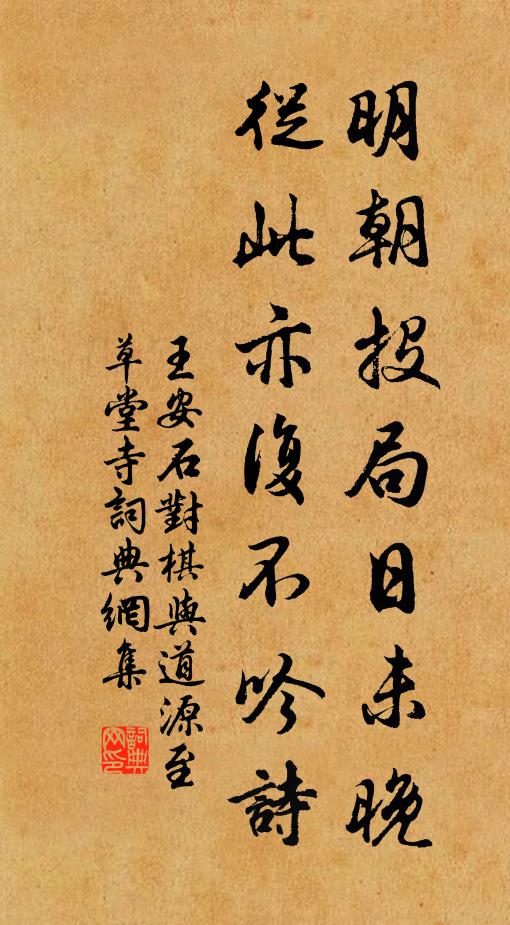 明朝投局日未晚
從此亦復不吟詩
王安石對棋與道源至
草堂寺詞典網集
詞典網印